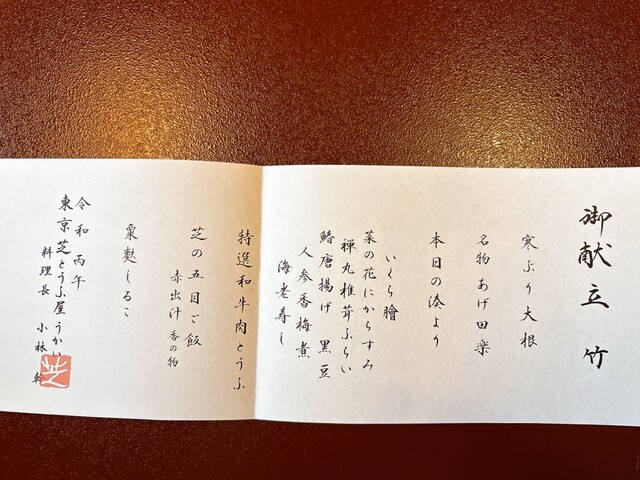 御献立 竹
寒ぶり大根
名物あげ田楽
本日の湊より
いくら膾
菜の花にからすみ
禅丸椎茸ふらい
鰆唐揚げ 黒豆
人参香梅煮
海老寿し
特選和牛肉とうふ
芝の五目ご飯
赤出汁 香の物
粟麩しるこ
令和 丙午
東京芝とうふ屋うかい
料理長 小林